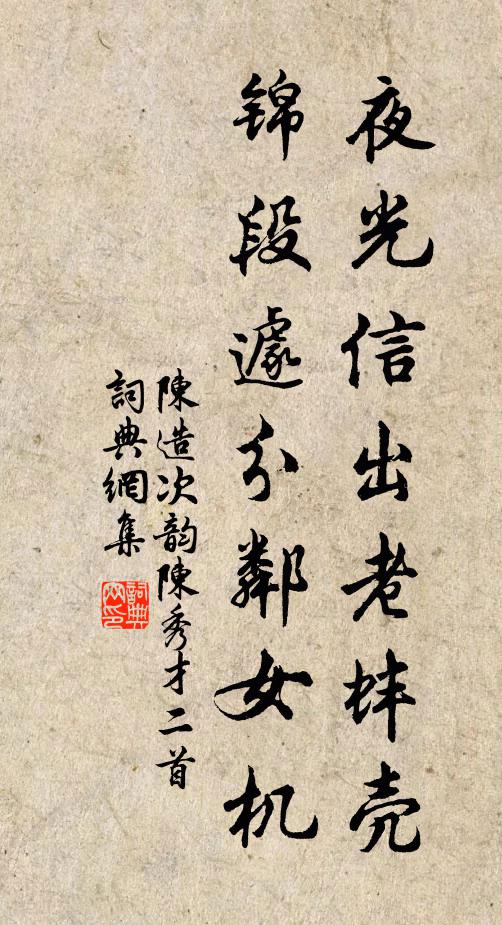 夜光信出老蚌壳
锦段遽分鄰女机
陳造次韵陳秀才二首
詞典網集
詞典
网印